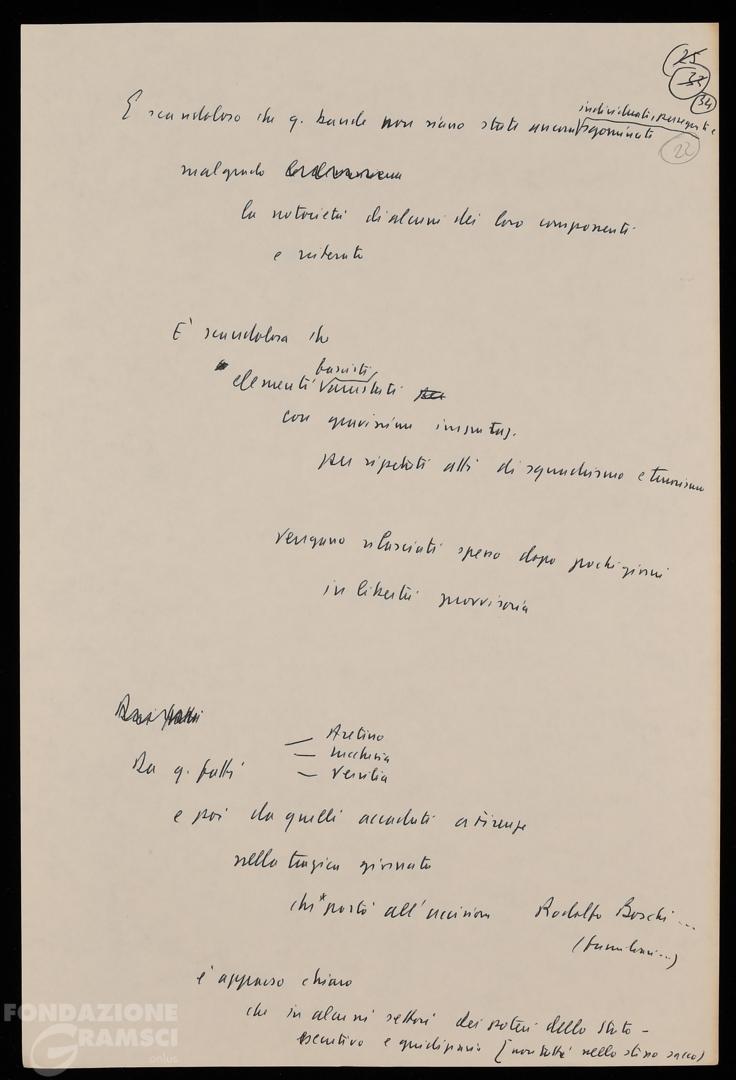 25
33
34
22
individuati, perseguiti e
E' scandaloso che q. bande non siano state ancora sgominate
malgrado
la notorietà di alcuni dei loro componenti
e
E' scandaloso che
fascisti
elementi arrestati
con gravissime imputaz.
per ripetuti atti di squadrismo e terrorismo
vengano rilasciati spesso dopo pochi giorni
in libertà provvisoria
Dai fatti
Da q. fatti
— Aretino
— Lucchesia
— Versilia
e poi da quelli accaduti a Firenze
nella tragica giornata
che portò all'uccisione Rodolfo Boschi ...
è apparso chiaro
che in alcuni settori dei poteri dello Stato –
esecutivo e giudiziario [non tutti nello stesso sacco)
FONDAZIONE
GRAMSCI
onlus